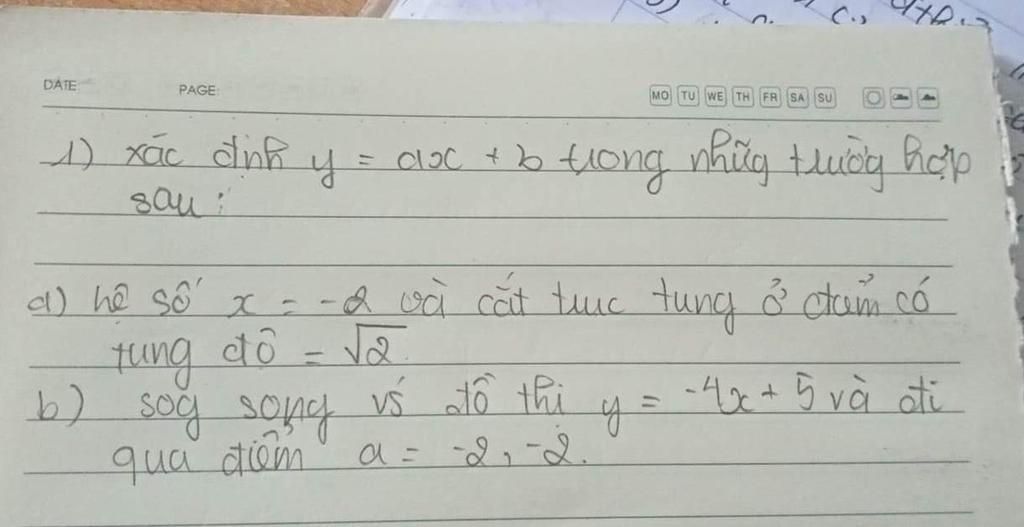 DATE: PAGE: MO TU WE TH FR SA SU
1) xác định y = ax + b trong những trường hợp
sau:
a) hệ số x = -2 và cắt trục tung ở điểm có
tung độ = √2.
b) sog song vs đồ thị y = -4x + 5 và đi
qua điểm a = -2, -2.